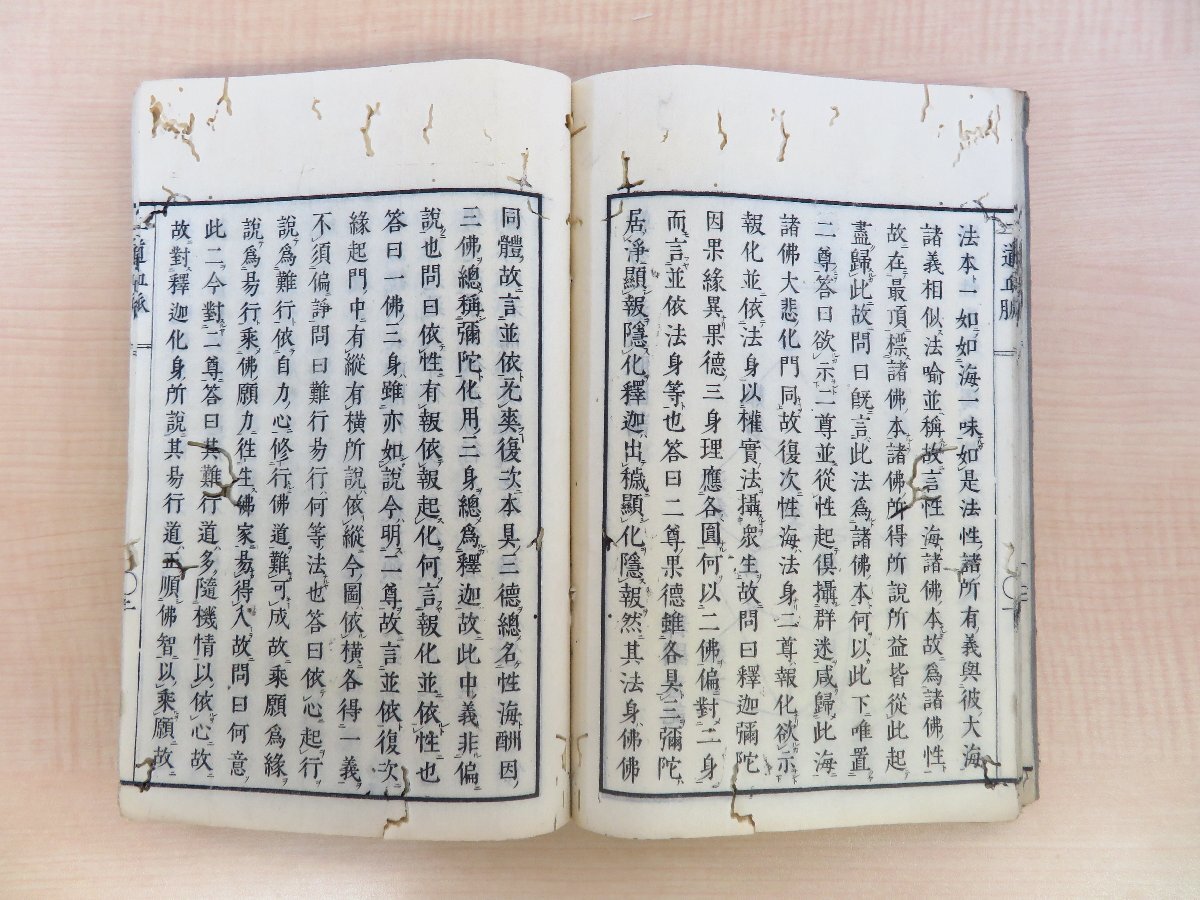 法本一如如海一味如是法性諸所有義與彼大海
諸義相似法喻並稱故言性海諸佛本故爲諸佛性
故在最頂標諸佛本諸佛所得所說所益皆從此起
盡歸此故問曰旣言此法爲諸佛本何以此下唯置
二尊答曰欲示二尊並從性起俱攝群迷咸歸此海
諸佛大悲化門同故復次性海法身二尊報化欲示
報化並依法身以權實法攝衆生故問曰釋迦彌陀
因果緣異果德三身理應各圓何以二佛偏對二身
而言並依法身等也答曰二尊果德雖各具三彌陀
居淨顯報隱化釋迦出穢顯化隱報然其法身佛佛
同體故言並依无爽復次本具三德總名性海酬因
三佛總稱彌陀化用三身總爲釋迦故此中義非偏
說也問曰依性有報依報起化何言報化並依性也
答曰一佛三身雖亦如說今明二尊故言並依復次
緣起門中有縱有橫所說依縱今圖依橫各得一義
不須偏諍問曰難行易行何等法也答曰依心起行
說爲難行依自力心修行佛道難可成故乘願爲緣
說爲易行乘佛願力徃生佛家易得入故問曰何意
此二今對二尊答曰其難行道多隨機情以依心故
故對釋迦化身所說其易行道正順佛智以乘願故